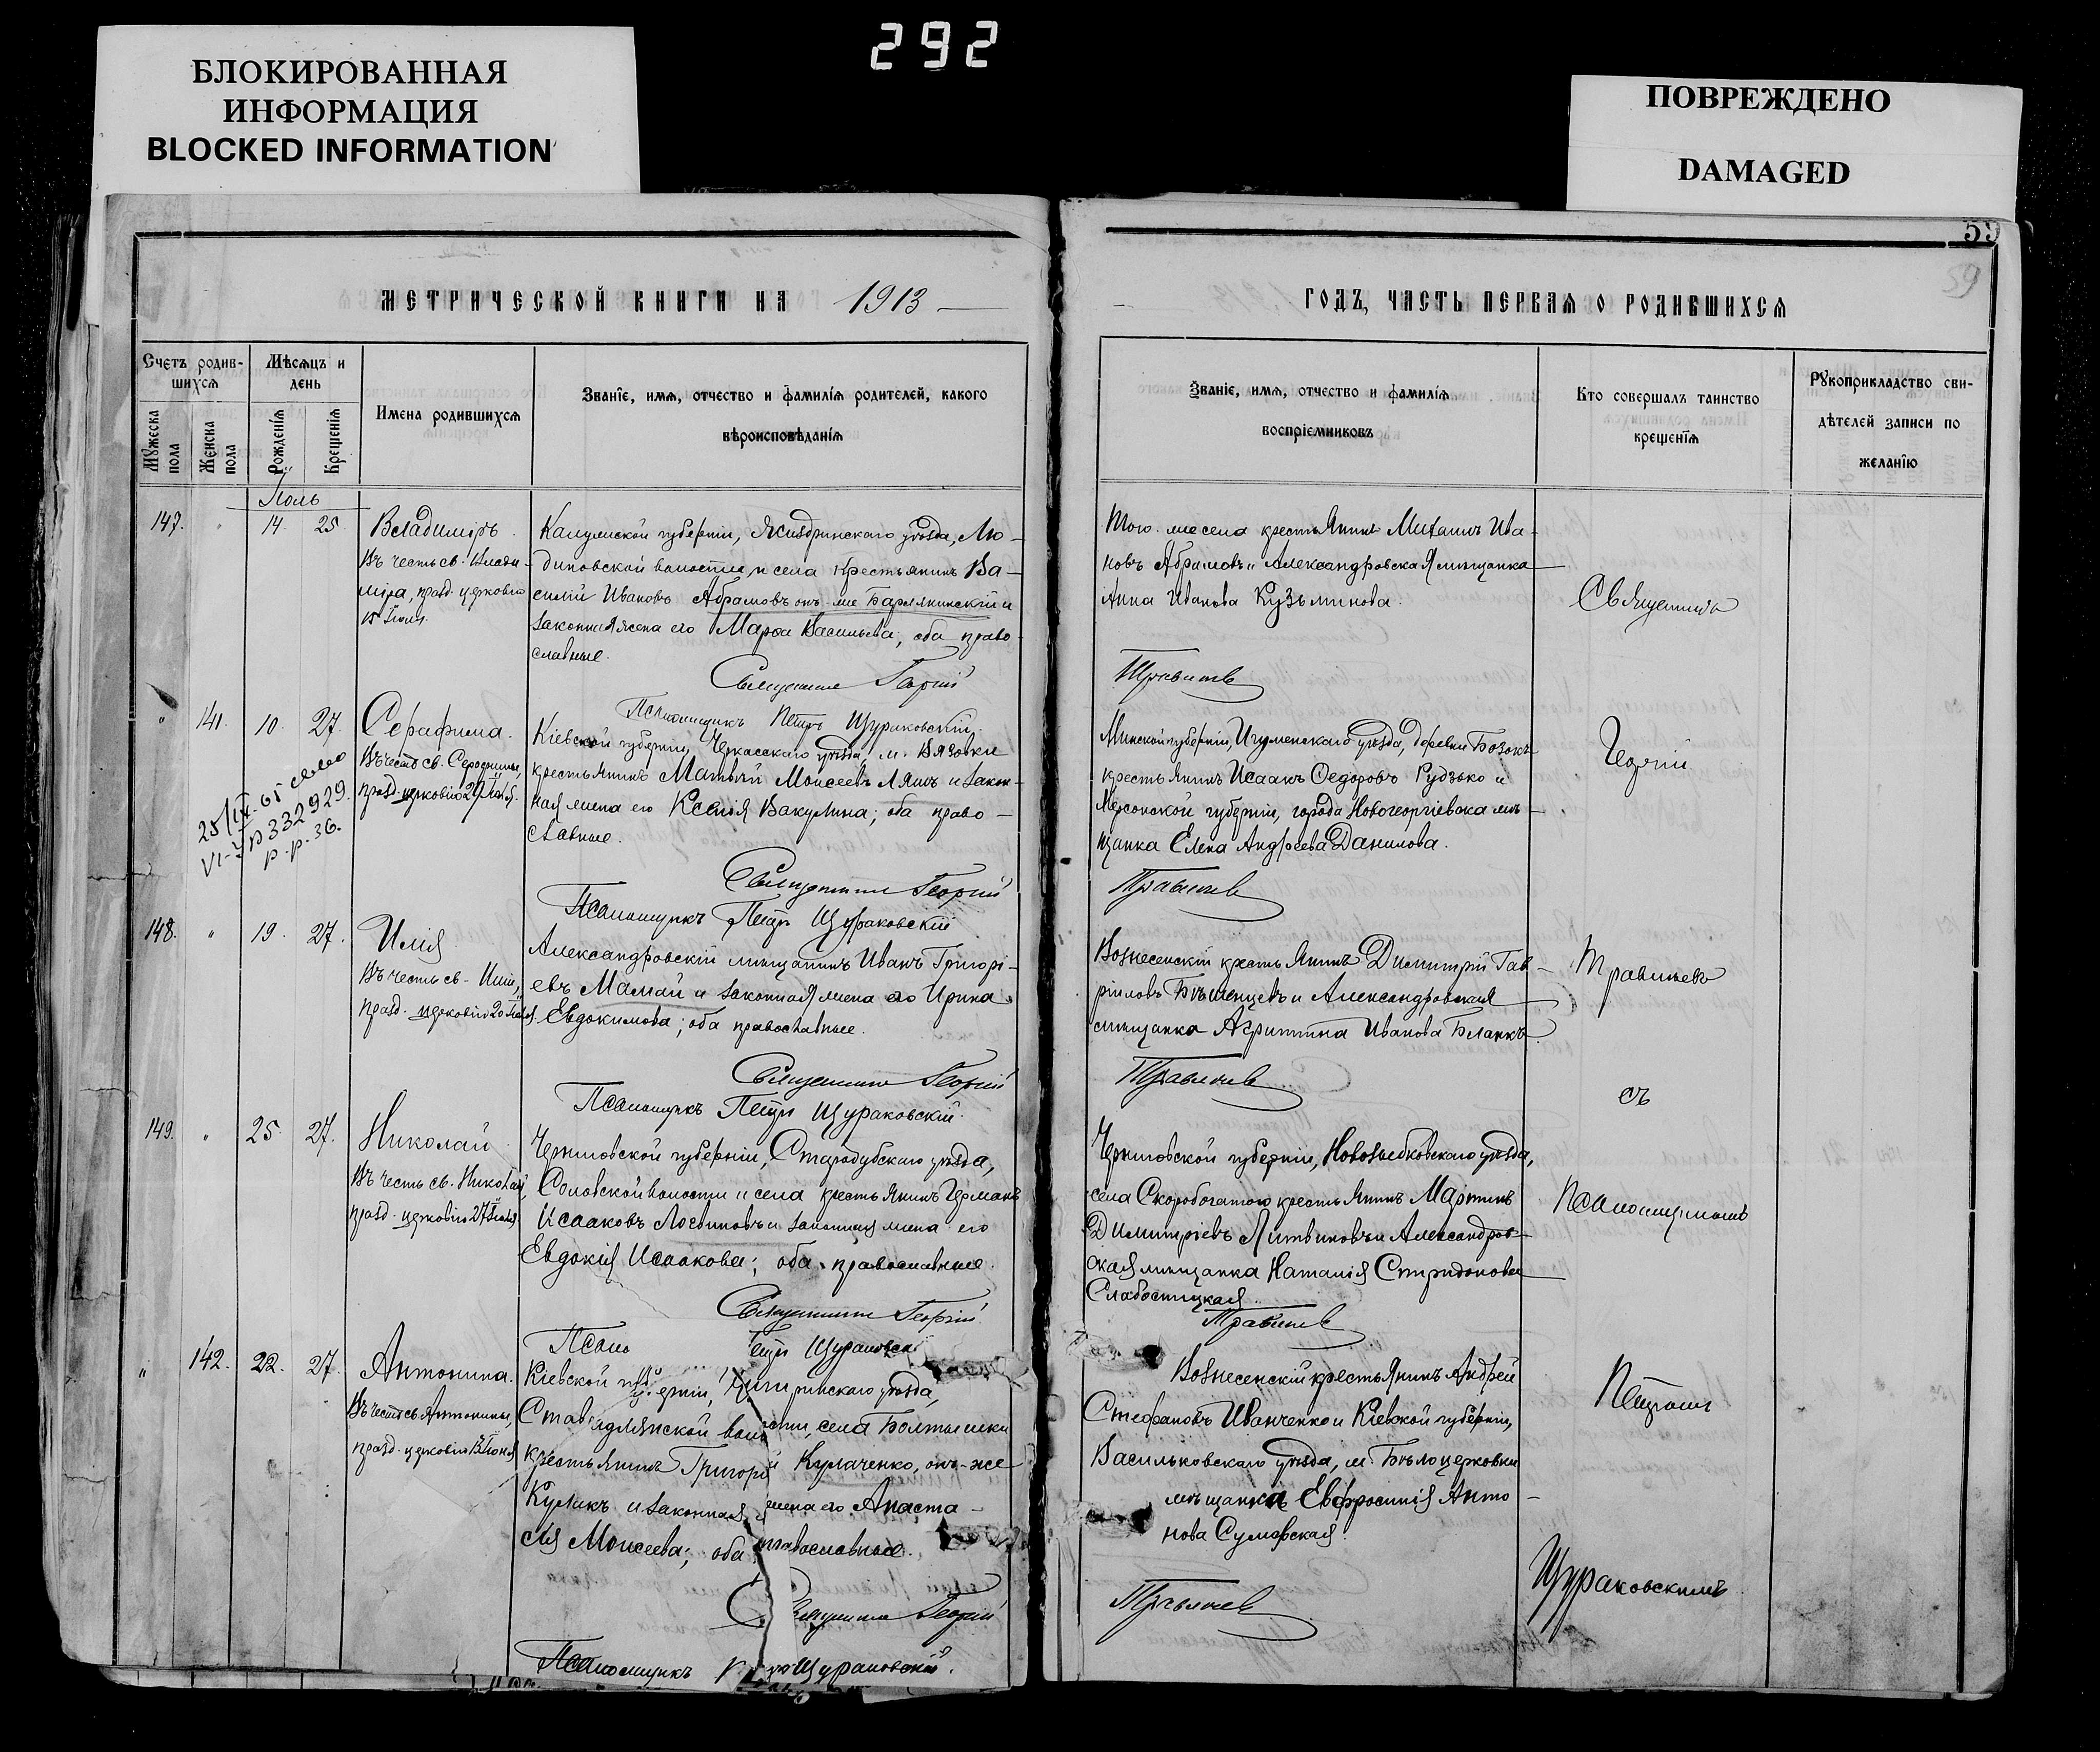 292
БЛОКИРОВАННАЯ
ИНФОРМАЦИЯ
BLOCKED INFORMATION
ПОВРЕЖДЕНО
DAMAGED
59
59
МЕТРИЧЕСКОЙ КНИГИ НА 1913
ГОДЪ, ЧАСТЬ ПЕРВАЯ О РОДИВШИХСЯ
Счетъ родив-
шихся
Мужеска пола
Женска пола
Мѣсяцъ и
день
Рожденія
Крещенія
Имена родившихся
Званіе, имя, отчество и фамилія родителей, какого
вѣроисповѣданія
Званіе, имя, отчество и фамилія
воспріемниковъ
Кто совершалъ таинство
крещенія
Рукоприкладство сви-
дѣтелей записи по
желанію
Іюль
147. " 14. 25.
Владиміръ.
Въ честь св. Влади-
міра, празд. церковію
15 Іюля.
Калужской губерніи, Жиздринскаго уѣзда, Лю-
диновской волости и села крестьянинъ Ва-
силій Ивановъ Абрамовъ онъ-же
законная жена его Марѳа Васильева; оба право-
славные.
Священникъ Георгій
Псаломщикъ Петръ Щураковскій.
Того-же села крестьянинъ Михаилъ Ива-
новъ Абрамовъ и Александровская мѣщанка
Анна Иванова Кузьминова.
Травинъ
Священникъ
" 141. 10. 27.
25/IX-65
VI-УР 332929
р.р. 36.
Серафима.
Въ честь св. Серафимы,
празд. церковію 29 Іюля.
Кіевской губерніи, Черкасскаго уѣзда, м. Вязовки
крестьянинъ Матвѣй Моисеевъ Ляшъ и закон-
ная жена его Ксенія Вакулина; оба право-
славные.
Священникъ Георгій
Псаломщикъ Петръ Щураковскій
Минской губерніи, Игуменскаго уѣзда, деревни
крестьянинъ Исаакъ Ѳедоровъ Рудзько и
Херсонской губерніи, города Новогеоргіевска мѣ-
щанка Елена Андреева Данилова.
Георгій
148. " 19. 27.
Илія
Въ честь св. Иліи,
празд. церковію 20 Іюля.
Александровскій мѣщанинъ Иванъ Григорі-
евъ Мамай и законная жена его Ирина
Евдокимова; оба православные.
Священникъ Георгій
Псаломщикъ Петръ Щураковскій.
Вознесенскій крестьянинъ Димитрій Гав-
ріиловъ и Александровская
мѣщанка Агриппина Иванова Бланкъ.
съ
149. " 25. 27.
Николай
Въ честь св. Николая,
празд. церковію 27 Іюля.
Черниговской губерніи, Стародубскаго уѣзда,
Соловской волости и села крестьянинъ Германъ
Исааковъ и законная жена его
Евдокія Исаакова; оба православные.
Священникъ Георгій
Псало Петръ Щураковскі
Черниговской губерніи, Новозыбковскаго уѣзда,
села Скоробогатою крестьянинъ Мартинъ
Димитріевъ Литвиновъ и Александров-
ская мѣщанка Наталія Спиридонова
Слабостицкая.
Псаломщикомъ
" 142. 22. 27.
Антонина.
Въ честь св. Антонины,
празд. церковію 13 Іюня
Кіевской губерніи, Чигиринскаго уѣзда,
Ставидлянской волости, села Болтышки
крестьянинъ Григорій Кулаченко, онъ-же
Куликъ и законная жена его Анаста-
сія Моисеева; оба православные.
Священникъ Георгій
Псаломщикъ Щураковскій.
Вознесенскій крестьянинъ Андрей
Стефановъ Иванченко и Кіевской губерніи,
Васильковскаго уѣзда, м. Бѣлоцерковки
мѣщанка Евфросинія Анто-
нова Сумовская.
Петромъ
Щураковскимъ